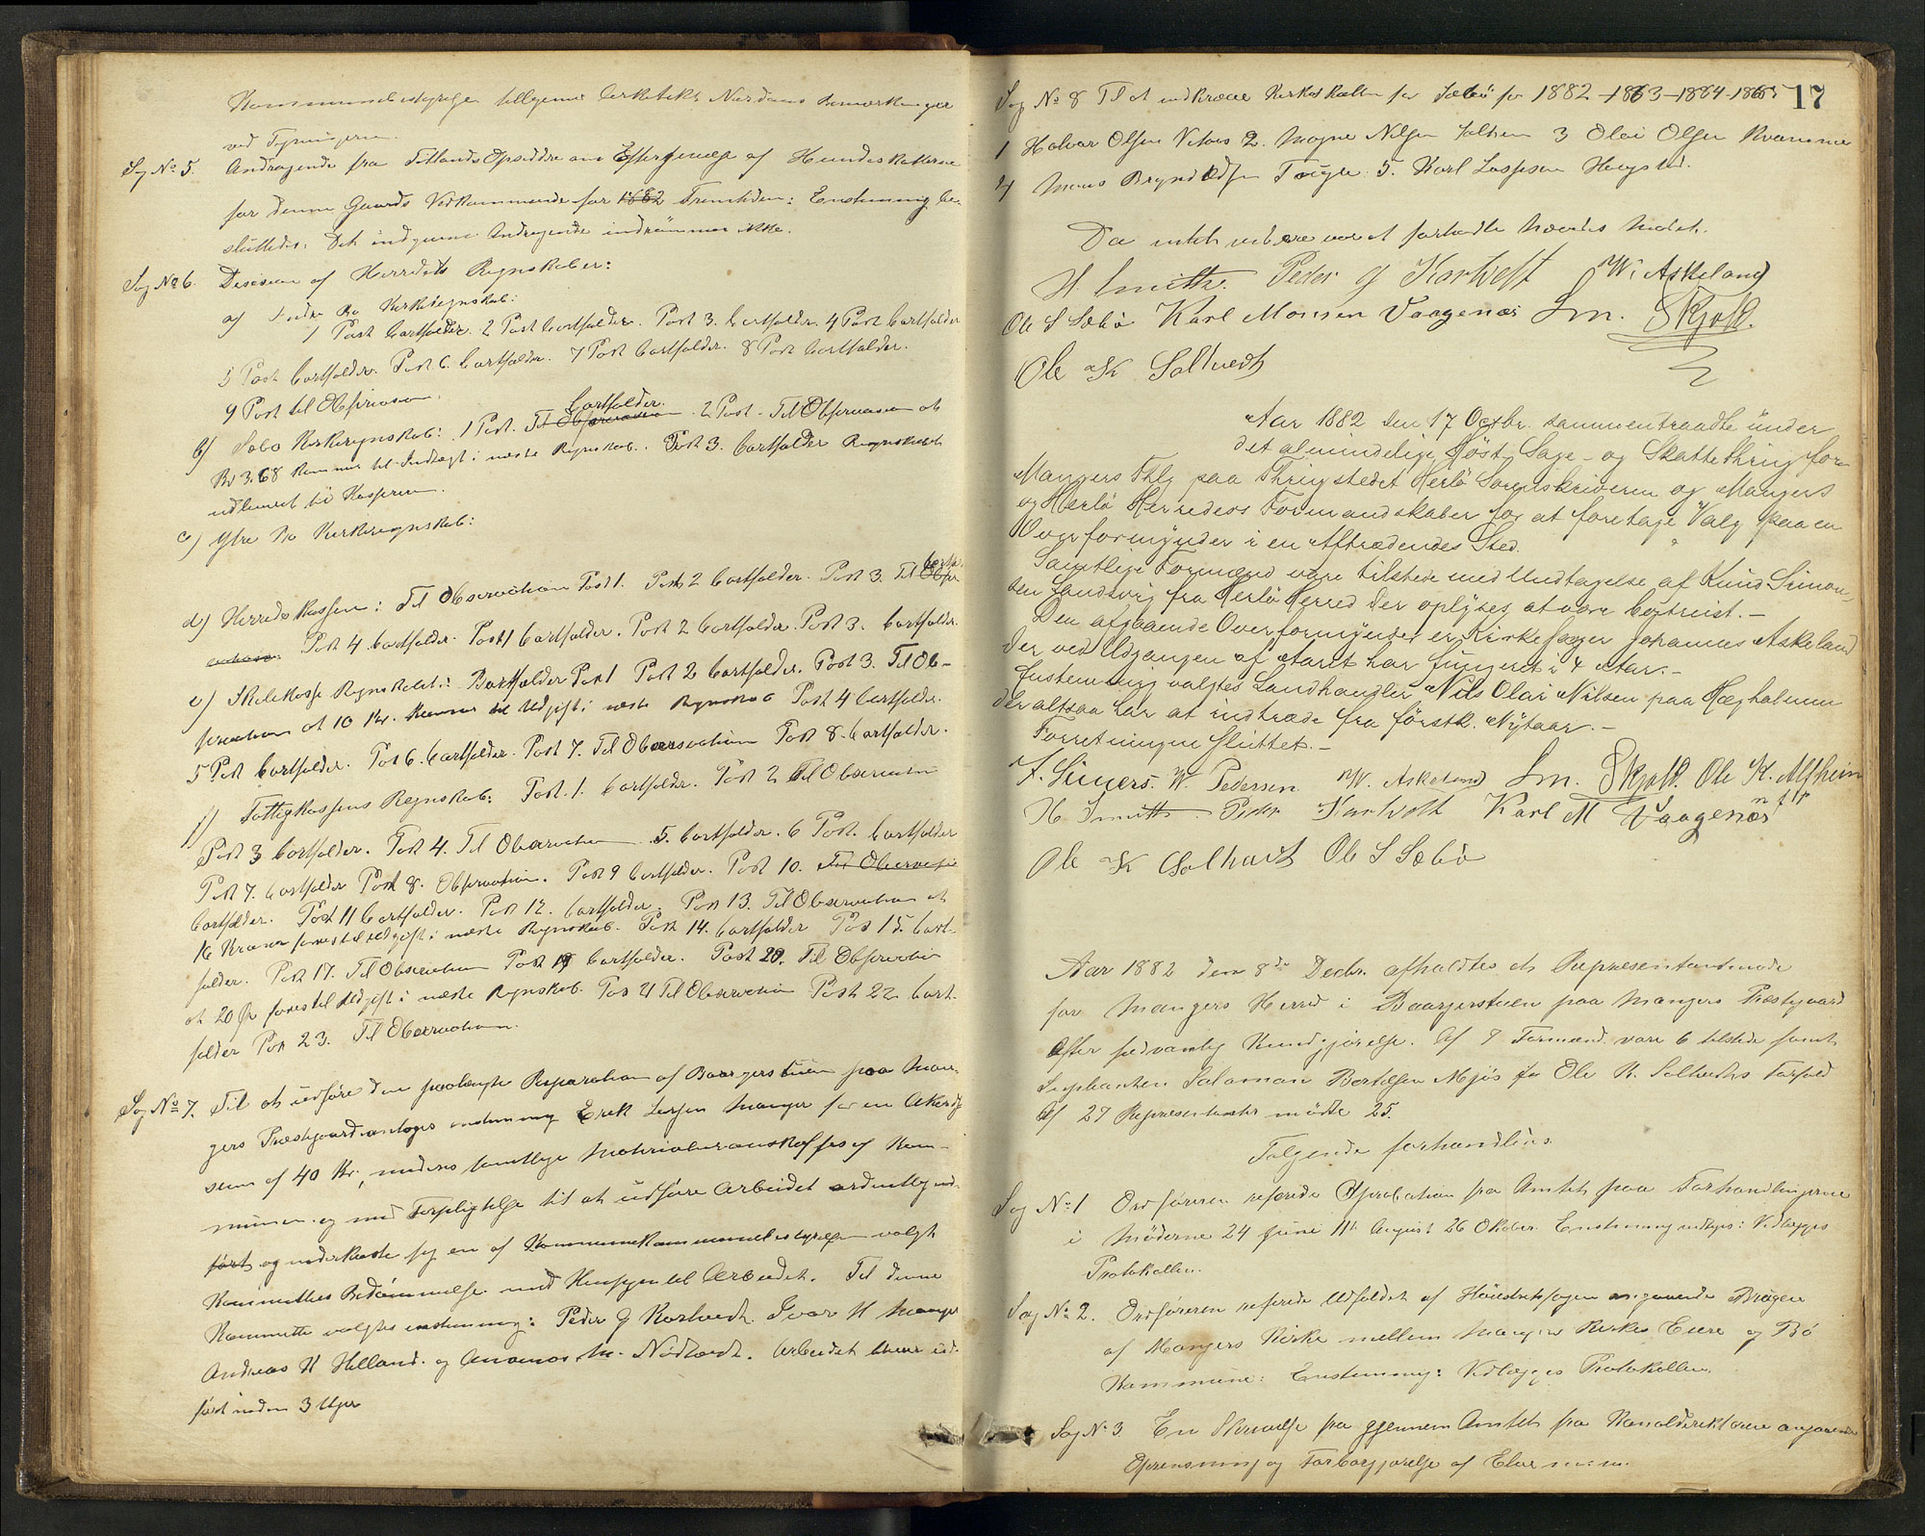 Kommunebestyrelse tilligemed Arkitekt Nordans Bemærkninger
ved Tegningerne.
Sag No 5. Andragende fra Titlands Opsiddre om Eftergivelse af Hundeskatterne
for denne Gaards Vedkommende for 1882 Fremtiden: Enstemmig be-
sluttedes: Det indgivne Andragende indrømmes ikke.
Sag No 6. Decision af Herredets Regnskaber:
a) Indre Bø Kirkeregnskab:
1 Post bortfalder. 2 Post bortfalder. Post 3. bortfalder. 4 Post bortfalder
5 Post bortfalder. Post 6. bortfalder. 7 Post bortfalder. 8 Post bortfalder.
9 Post til Observasion.
bortfalder.
b) Sæbø Kirkeregnskab: 1 Post. Til Observasion. 2 Post. Til Observasion at
Kr 3.68 kommer til Indtægt i næste Regnskab. Post 3. bortfalder Regnskabet
udlaant til Kasseren.
c) Ytre Bø Kirkeregnskab:
d) Herredskassen: Til Observation Post 1. Post 2 bortfalder. Post 3. Til Obser-
vation. Post 4 bortfalder. Post 1 bortfalder. Post 2 bortfalder. Post 3. bortfalder.
e) Skolekasse Regnskabet: Bortfalder Post 1 Post 2 bortfalder. Post 3. Til Ob-
servation at 10 Kr. kommer til Udgift i næste Regnskab Post 4 bortfalder.
5 Post bortfalder. Post 6. bortfalder. Post 7. Til Observation Post 8. bortfalder.
f) Fattigkassens Regnskab: Post. 1. bortfalder. Post 2 Til Observation
Post 3 bortfalder. Post 4. Til Observation 5. bortfalder. 6 Post. bortfalder
Post 7. bortfalder Post 8. Observation. Post 9 bortfalder. Post 10. Til Observation
bortfalder. Post 11 bortfalder. Post 12. bortfalder. Post 13. Til Observation at
16 Kroner føres til Udgift i næste Regnskab. Post 14. bortfalder Post 15. bort-
falder. Post 17. Til Observation Post 19 bortfalder. Post 20. Til Observation
at 20 Kr føres til Udgift i næste Regnskab. Post 21 Til Observation Post 22 bort-
falder Post 23. Til Observation.
Sag No 7. Til at udføre den paatænkte Reparation af Baargerstuen paa Man-
gers Præstegaard antoges enstemmig Erik Manger for en Akord-
sum af 40 Kr, medens samtlige Materialier anskaffes af Kom-
munen og med Forpligtelse til at udføre Arbeidet ordentlig ud-
ført og underkaste sig en af Kommunebestyrelsen valgt
Kommittees Bedømmelse med Hensyn til Arbeidet. Til denne
Kommitte valgtes enstemmig: Peder G Kartveit. Ivar H Manger
Andreas H Helland. og M. Nødtvedt. Arbeidet bliver ud-
ført inden 3 Uger
17
Sag No 8 Til at indkræve Kirkeskatten for Sæbø for 1882-1883-1884-1885
1 Halvor Olsen 2. Mogne Nilsen 3 Olai Olsen Kvamme
4 Mons 5. Karl Hougstad.
Da intet videre var at forhandle hævedes Mødet.
H Smith. Peder G Kartveit W. Askeland
Ole S Sæbø Karl Monsen Vaagenæs Lm. Skjold.
Ole K Soltvedt
Aar 1882 den 17 Octbr. sammentraadte under
det almindelige Høst, Sage- og Skattething for
Mangers Thlg. paa Thingstedet Herlø Sorenskriveren og Mangers
og Herlø Herreders Formandskaber for at foretage Valg paa en
Overformynder i en Aftrædendes Sted.
Samtlige Formænd vare tilstede med Undtagelse af Knud Simon-
sen Landsvig fra Herlø Herred der oplyses at være bortreist.-
Den afgaaende Overformynder er Kirkesanger Johannes Askeland
der ved Udgangen af Aaret har fungeret i 4 Aar.-
Enstemmig valgtes Landhandler Nils Olai Nilsen paa Hægholmen
der altsaa har at indtræde fra førstk. Nytaar.-
Forretningen sluttet.-
F. Siewers. W. Pedersen W. Askeland Lm. Skjold. Ole K. Alfheim
H. Smith. Peder Kartveit Karl M Vaagenæs
Ole K Soltvedt Ole S Sæbø
Aar 1882 den 8de Decbr. afholdtes et Repræsentantmøde
for Mangers Herred i Baargerstuen paa Mangers Præstegaard
efter sedvanlig Kundgjørelse. Af 7 Formænd vare 6 tilstede samt
Suppleanten Salamon Bertelsen Mjøs for Ole K. Soltvedts Forfald
Af 27 Repræsentanter mødte 25.
Følgende forhandledes.
Sag No 1 Ordføreren referede Aprobation fra Amtet paa Forhandlingerne
i Møderne 24 Juni 11te August 26 Oktober. Enstemmig vedtoges: Vedlægges
Protokollen.
Sag No 2. Ordføreren referede Udfaldet af Høiestretssagen angaaende
af Mangers Kirke mellem Mangers Kirkes Eiere og Bø
Kommune: Enstemmig: Vedlægges Protokollen.
Sag No 3 En Skrivelse fra gjennem Amtet fra Kanaldirektøren angaaende
Oprensning og Farbargjørelse af